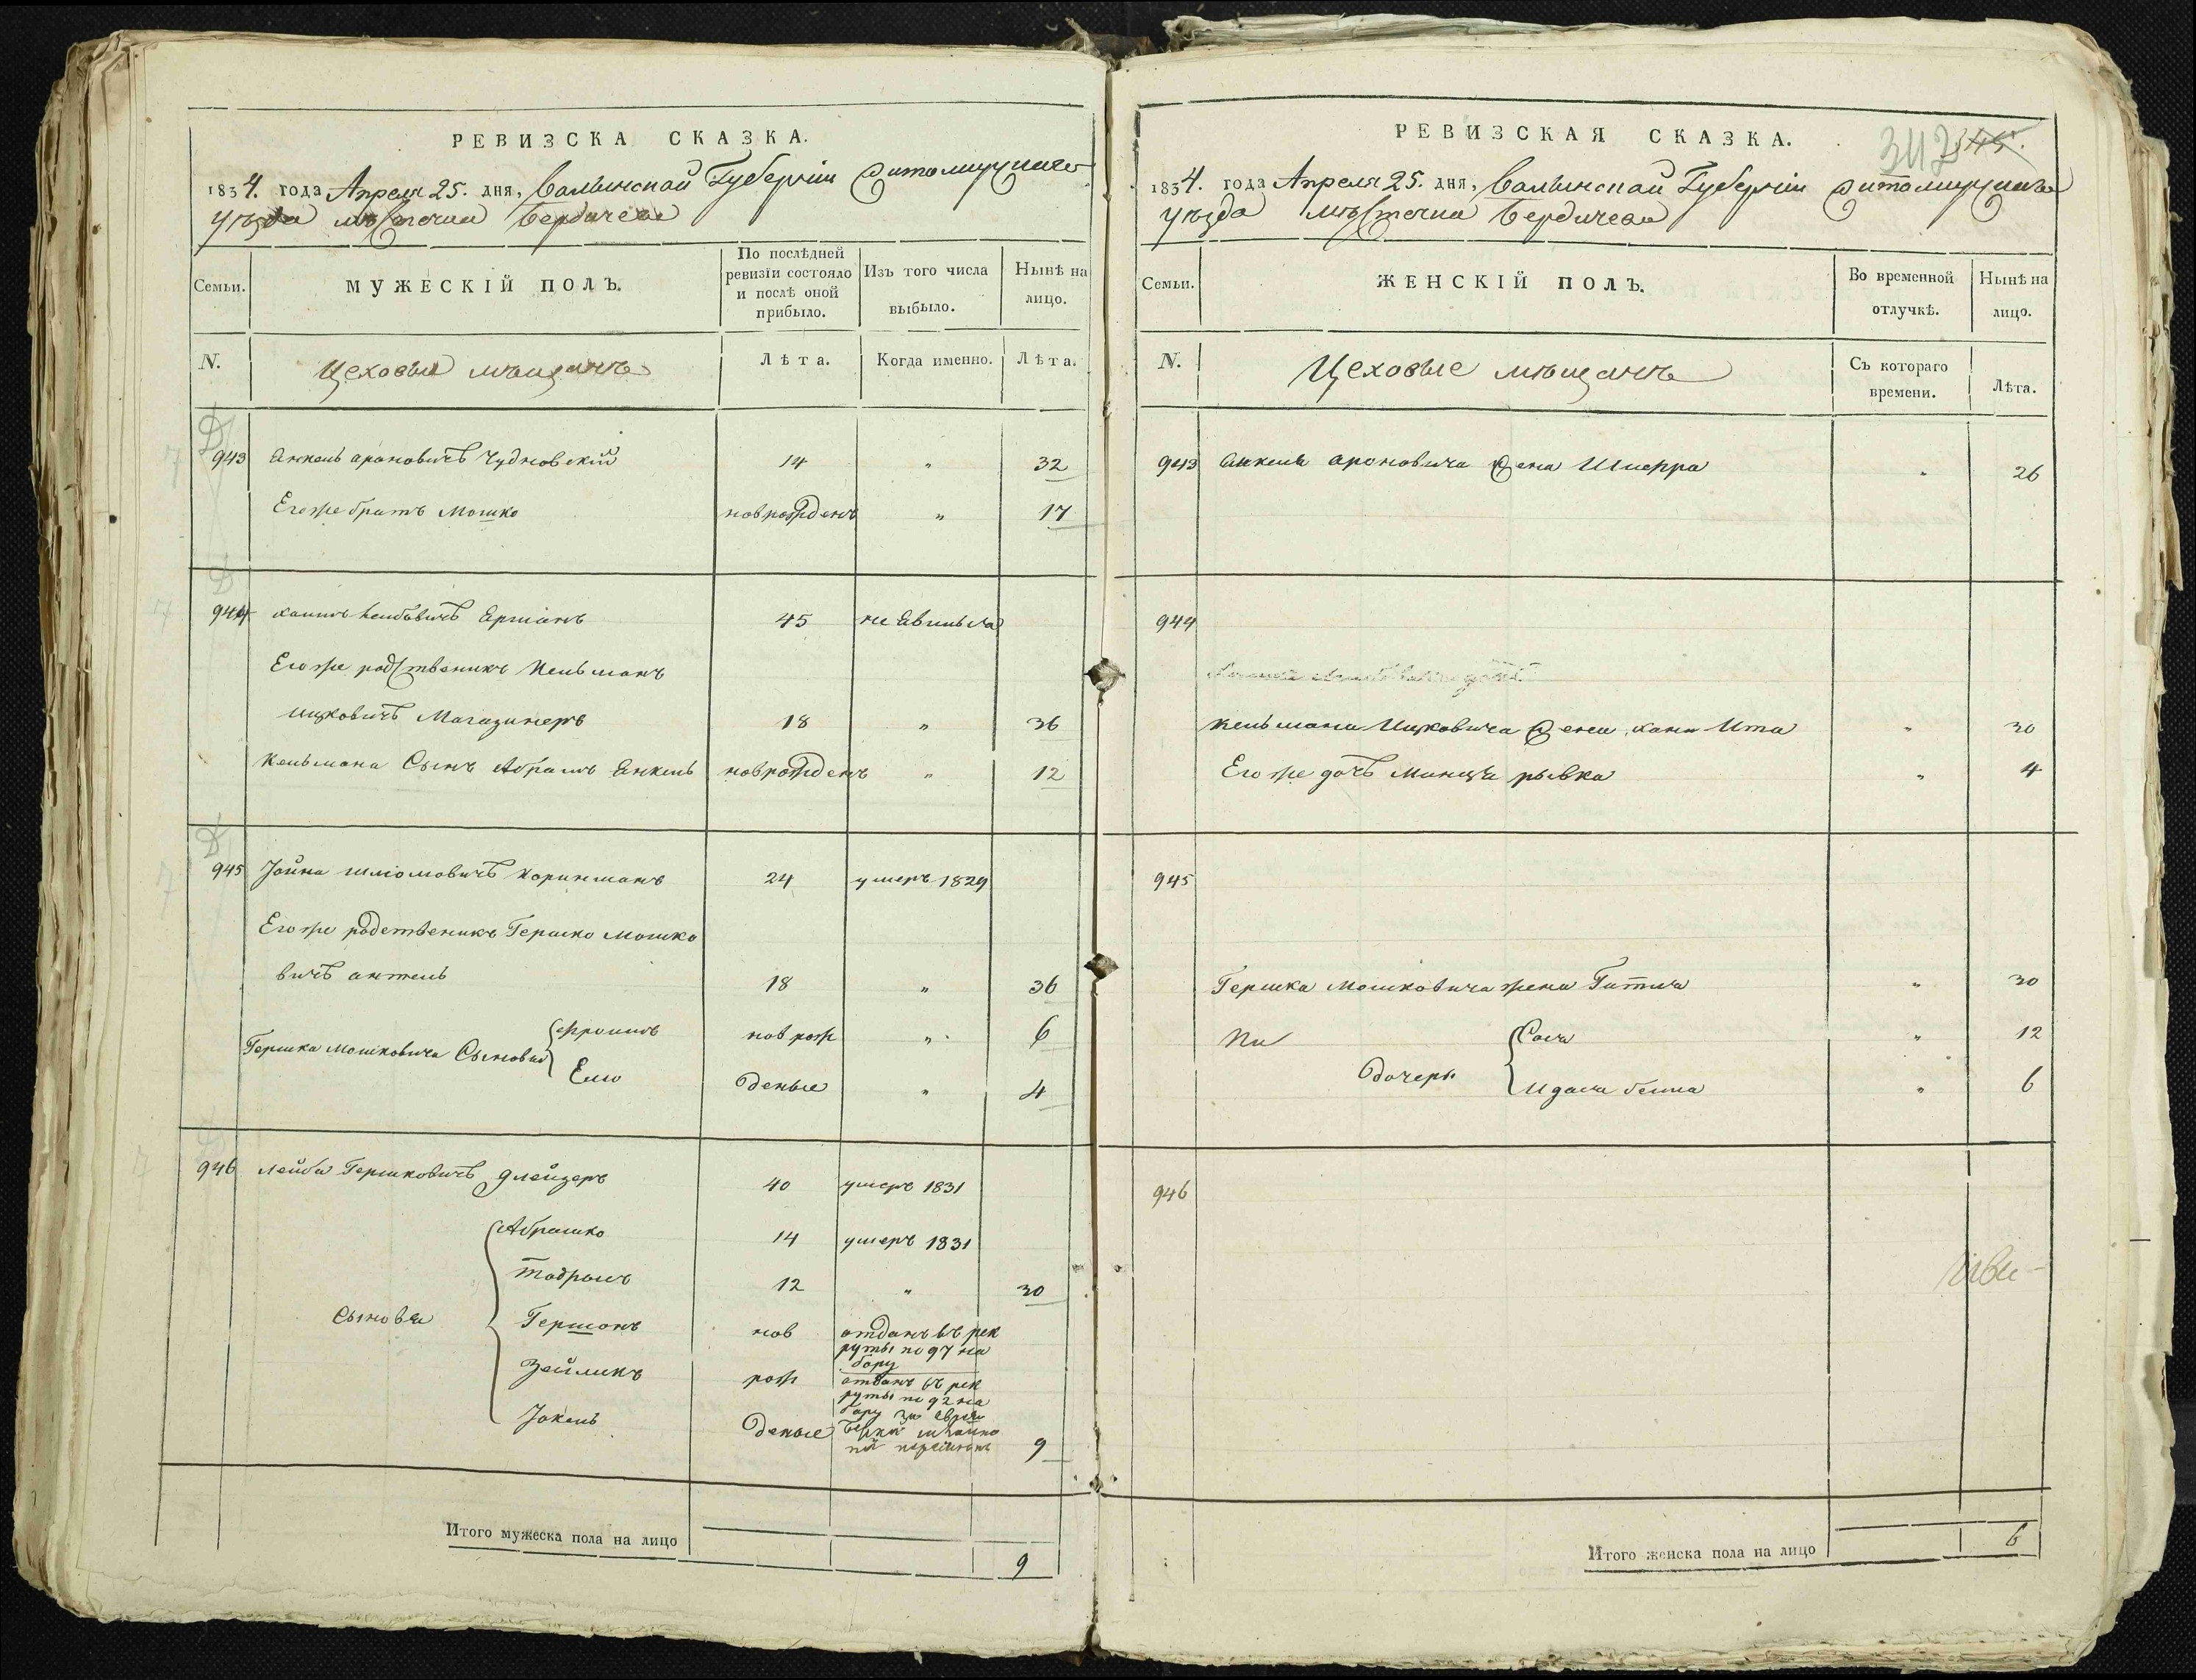 РЕВИЗСКА СКАЗКА.
1834. года Апреля 25. дня, Валынской Губерніи Житомирскаго
уѣзда мѣстечка Бердичева
Семьи.
МУЖЕСКІЙ ПОЛЪ.
По послѣдней ревизіи состояло и послѣ оной прибыло.
Изъ того числа выбыло.
Нынѣ на лицо.
N.
Цеховыя мѣщанъ
Лѣта.
Когда именно.
Лѣта.
943 Янкель ароновичъ Чудновскій 14 " 32
Его же братъ Мошко новрожденъ " 17
944 Ершанъ 45 не явился
Его же родственикъ Кельманъ
ицковичъ Магазинеръ 18 " 36
Кельмана Сынъ Абрамъ Янкель новрожденъ " 12
945 Іойна шліомовичъ Коринманъ 24 умеръ 1829
Его же родственикъ Гершко Мошко
вичъ антель 18 " 36
Гершка Мошковича Сыновья { Фроимъ новрож " 6
Елю деные " 4
946 Лейба Гершковичъ 40 умеръ 1831
Сыновья { Абрашко 14 умеръ 1831
Тодросъ 12 " 30
Гершонъ нов отданъ въ рек
руты по 97 на
бору
Зейликъ рож отданъ въ рек
руты по 92 на
бору за еврея
Іокель деные 9
Итого мужеска пола на лицо 9
РЕВИЗСКАЯ СКАЗКА.
1834. года Апреля 25. дня, Валынской Губерніи Житомирскаго
уѣзда мѣстечка Бердичева
Семьи.
ЖЕНСКІЙ ПОЛЪ.
Во временной отлучкѣ.
Нынѣ на лицо.
N.
Цеховые мѣщанъ
Съ котораго времени.
Лѣта.
943 Янкеля ароновича Жена Шифра " 26
944
Кельмана Ицковича Жена, хана Ита " 30
Его же дочь рывка " 4
945
Гершка Мошковича жена Гитля " 30
Дочеры { Сося " 12
бейла " 6
946
Итого женска пола на лицо 6